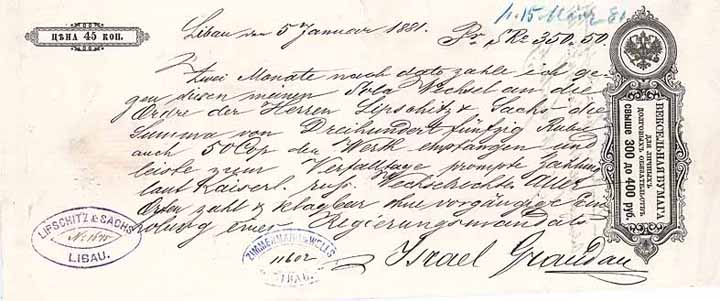 ЦѢНА 45 КОП.
Libau den 5 Januar 1881.
Pr. SRo 350.50
15 März 81
Zwei Monate nach dato zahle ich ge-
gen diesen meinen Sola Wechsel an die
Ordre der Herren Lipschitz & Sachs die
Summa von Dreihundert fünfzig Rubel
auch 50 Cop den Werth empfangen und
leiste zum Verfalltage prompte Zahlung
laut Kaiserl. russ. Wechselrechte. Aller
Orten zahl & klagbar ohne vorgängige Ein
holung eines Regierungsmandats
Israel
ВЕКСЕЛЬНАЯ БУМАГА
ДЛЯ ЛИЧНЫХЪ
ДОЛГОВЫХЪ ОБЯЗАТЕЛЬСТВЪ
СВЫШЕ 300 ДО 400 РУБ.
LIPSCHITZ & SACHS
LIBAU.
ZIMMERMANN & WELLS
LIBAU.
11602